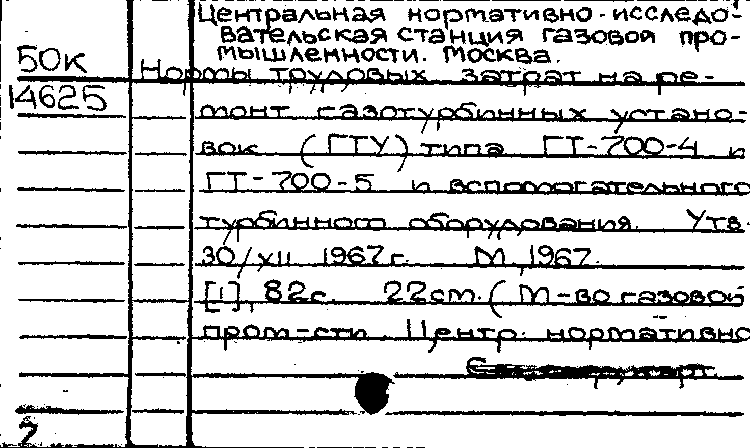 Центральная нормативно-исследо-
вательская станция газовой про-
мышленности. Москва.
50к Нормы трудовых затрат на ре-
14625 монт газотурбинных устано-
вок (ГТУ) типа ГТ-700-4 и
ГТ-700-5 и вспомогательного
турбинного оборудования. Утв.
30/XII 1967г. М., 1967.
[1], 82с. 22см. (М-во газовой
пром-сти. Центр. нормативно
2